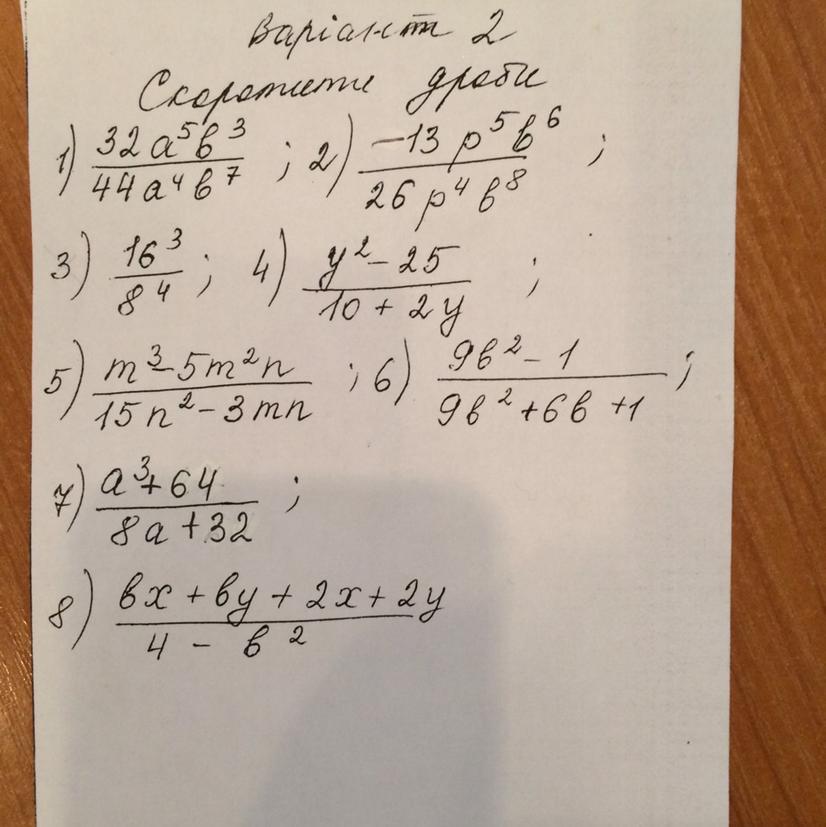 Варіант 2
Скоротити дроби
1) 32a⁵b³ / 44a⁴b⁷ ; 2) −13p⁵b⁶ / 26p⁴b⁸ ;
3) 16³ / 8⁴ ; 4) y² − 25 / 10 + 2y ;
5) m³ − 5m²n / 15n² − 3mn ; 6) 9b² − 1 / 9b² + 6b + 1 ;
7) a³ + 64 / 8a + 32 ;
8) bx + by + 2x + 2y / 4 − b²